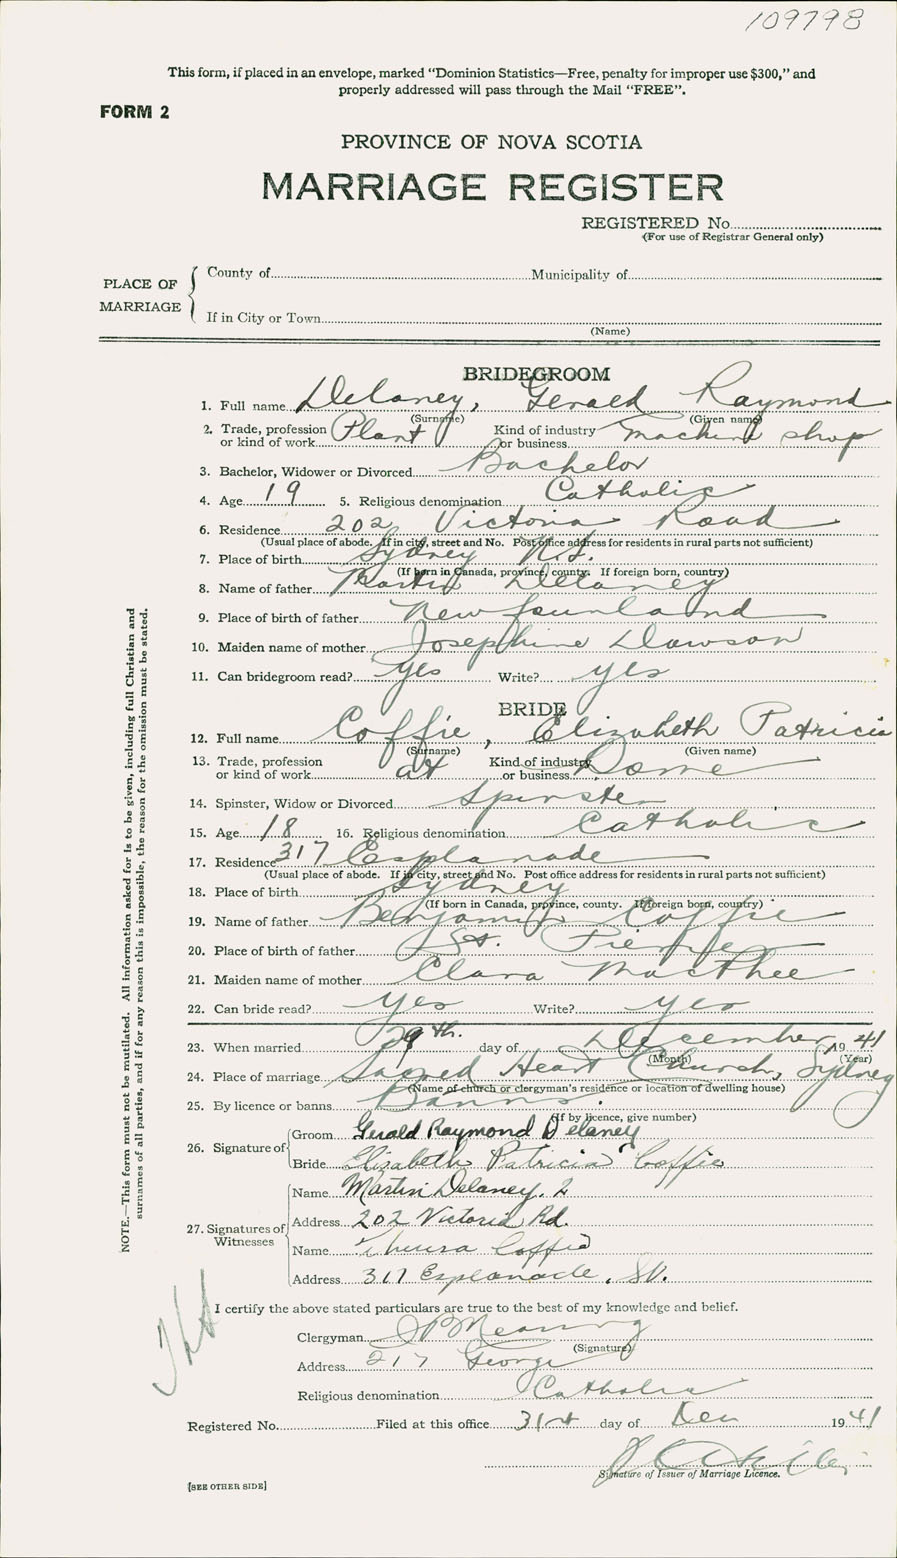 109798
This form, if placed in an envelope, marked "Dominion Statistics—Free, penalty for improper use $300," and
properly addressed will pass through the Mail "FREE".
FORM 2
PROVINCE OF NOVA SCOTIA
MARRIAGE REGISTER
REGISTERED No.
(For use of Registrar General only)
PLACE OF MARRIAGE
County of Municipality of
If in City or Town
(Name)
BRIDEGROOM
1. Full name Delaney, Gerald Raymond
(Surname) (Given name)
2. Trade, profession or kind of work Plant Kind of industry or business machine shop
3. Bachelor, Widower or Divorced Bachelor
4. Age 19 5. Religious denomination Catholic
6. Residence 202 Victoria Road
(Usual place of abode. If in city, street and No. Post office address for residents in rural parts not sufficient)
7. Place of birth Sydney N.S.
(If born in Canada, province, county. If foreign born, country)
8. Name of father Martin Delaney
9. Place of birth of father Newfounland
10. Maiden name of mother Josephine Dawson
11. Can bridegroom read? Yes Write? yes
BRIDE
12. Full name Coffie, Elizabeth Patricia
(Surname) (Given name)
13. Trade, profession or kind of work at Kind of industry or business Home
14. Spinster, Widow or Divorced Spinster
15. Age 18 16. Religious denomination Catholic
17. Residence 317 Esplanade
(Usual place of abode. If in city, street and No. Post office address for residents in rural parts not sufficient)
18. Place of birth Sydney
(If born in Canada, province, county. If foreign born, country)
19. Name of father Benjamin Coffie
20. Place of birth of father St. Pierre
21. Maiden name of mother Clara MacPhee
22. Can bride read? yes Write? yes
23. When married 29th. day of December, 1941
(Month) (Year)
24. Place of marriage Sacred Heart Church, Sydney
(Name of church or clergyman's residence or location of dwelling house)
25. By licence or banns Banns.
(If by licence, give number)
26. Signature of
Groom Gerald Raymond Delaney
Bride Elizabeth Patricia Coffie
27. Signatures of Witnesses
Name Martin Delaney.
Address 202 Victoria Rd.
Name Theresa Coffie
Address 317 Esplanade.
I certify the above stated particulars are true to the best of my knowledge and belief.
Clergyman
(Signature)
Address 217 George
Religious denomination Catholic
Registered No. Filed at this office 31st day of Dec 1941
Signature of Issuer of Marriage Licence.
[SEE OTHER SIDE]
NOTE.—This form must not be mutilated. All information asked for is to be given, including full Christian and
surnames of all parties, and if for any reason this is impossible, the reason for the omission must be stated.